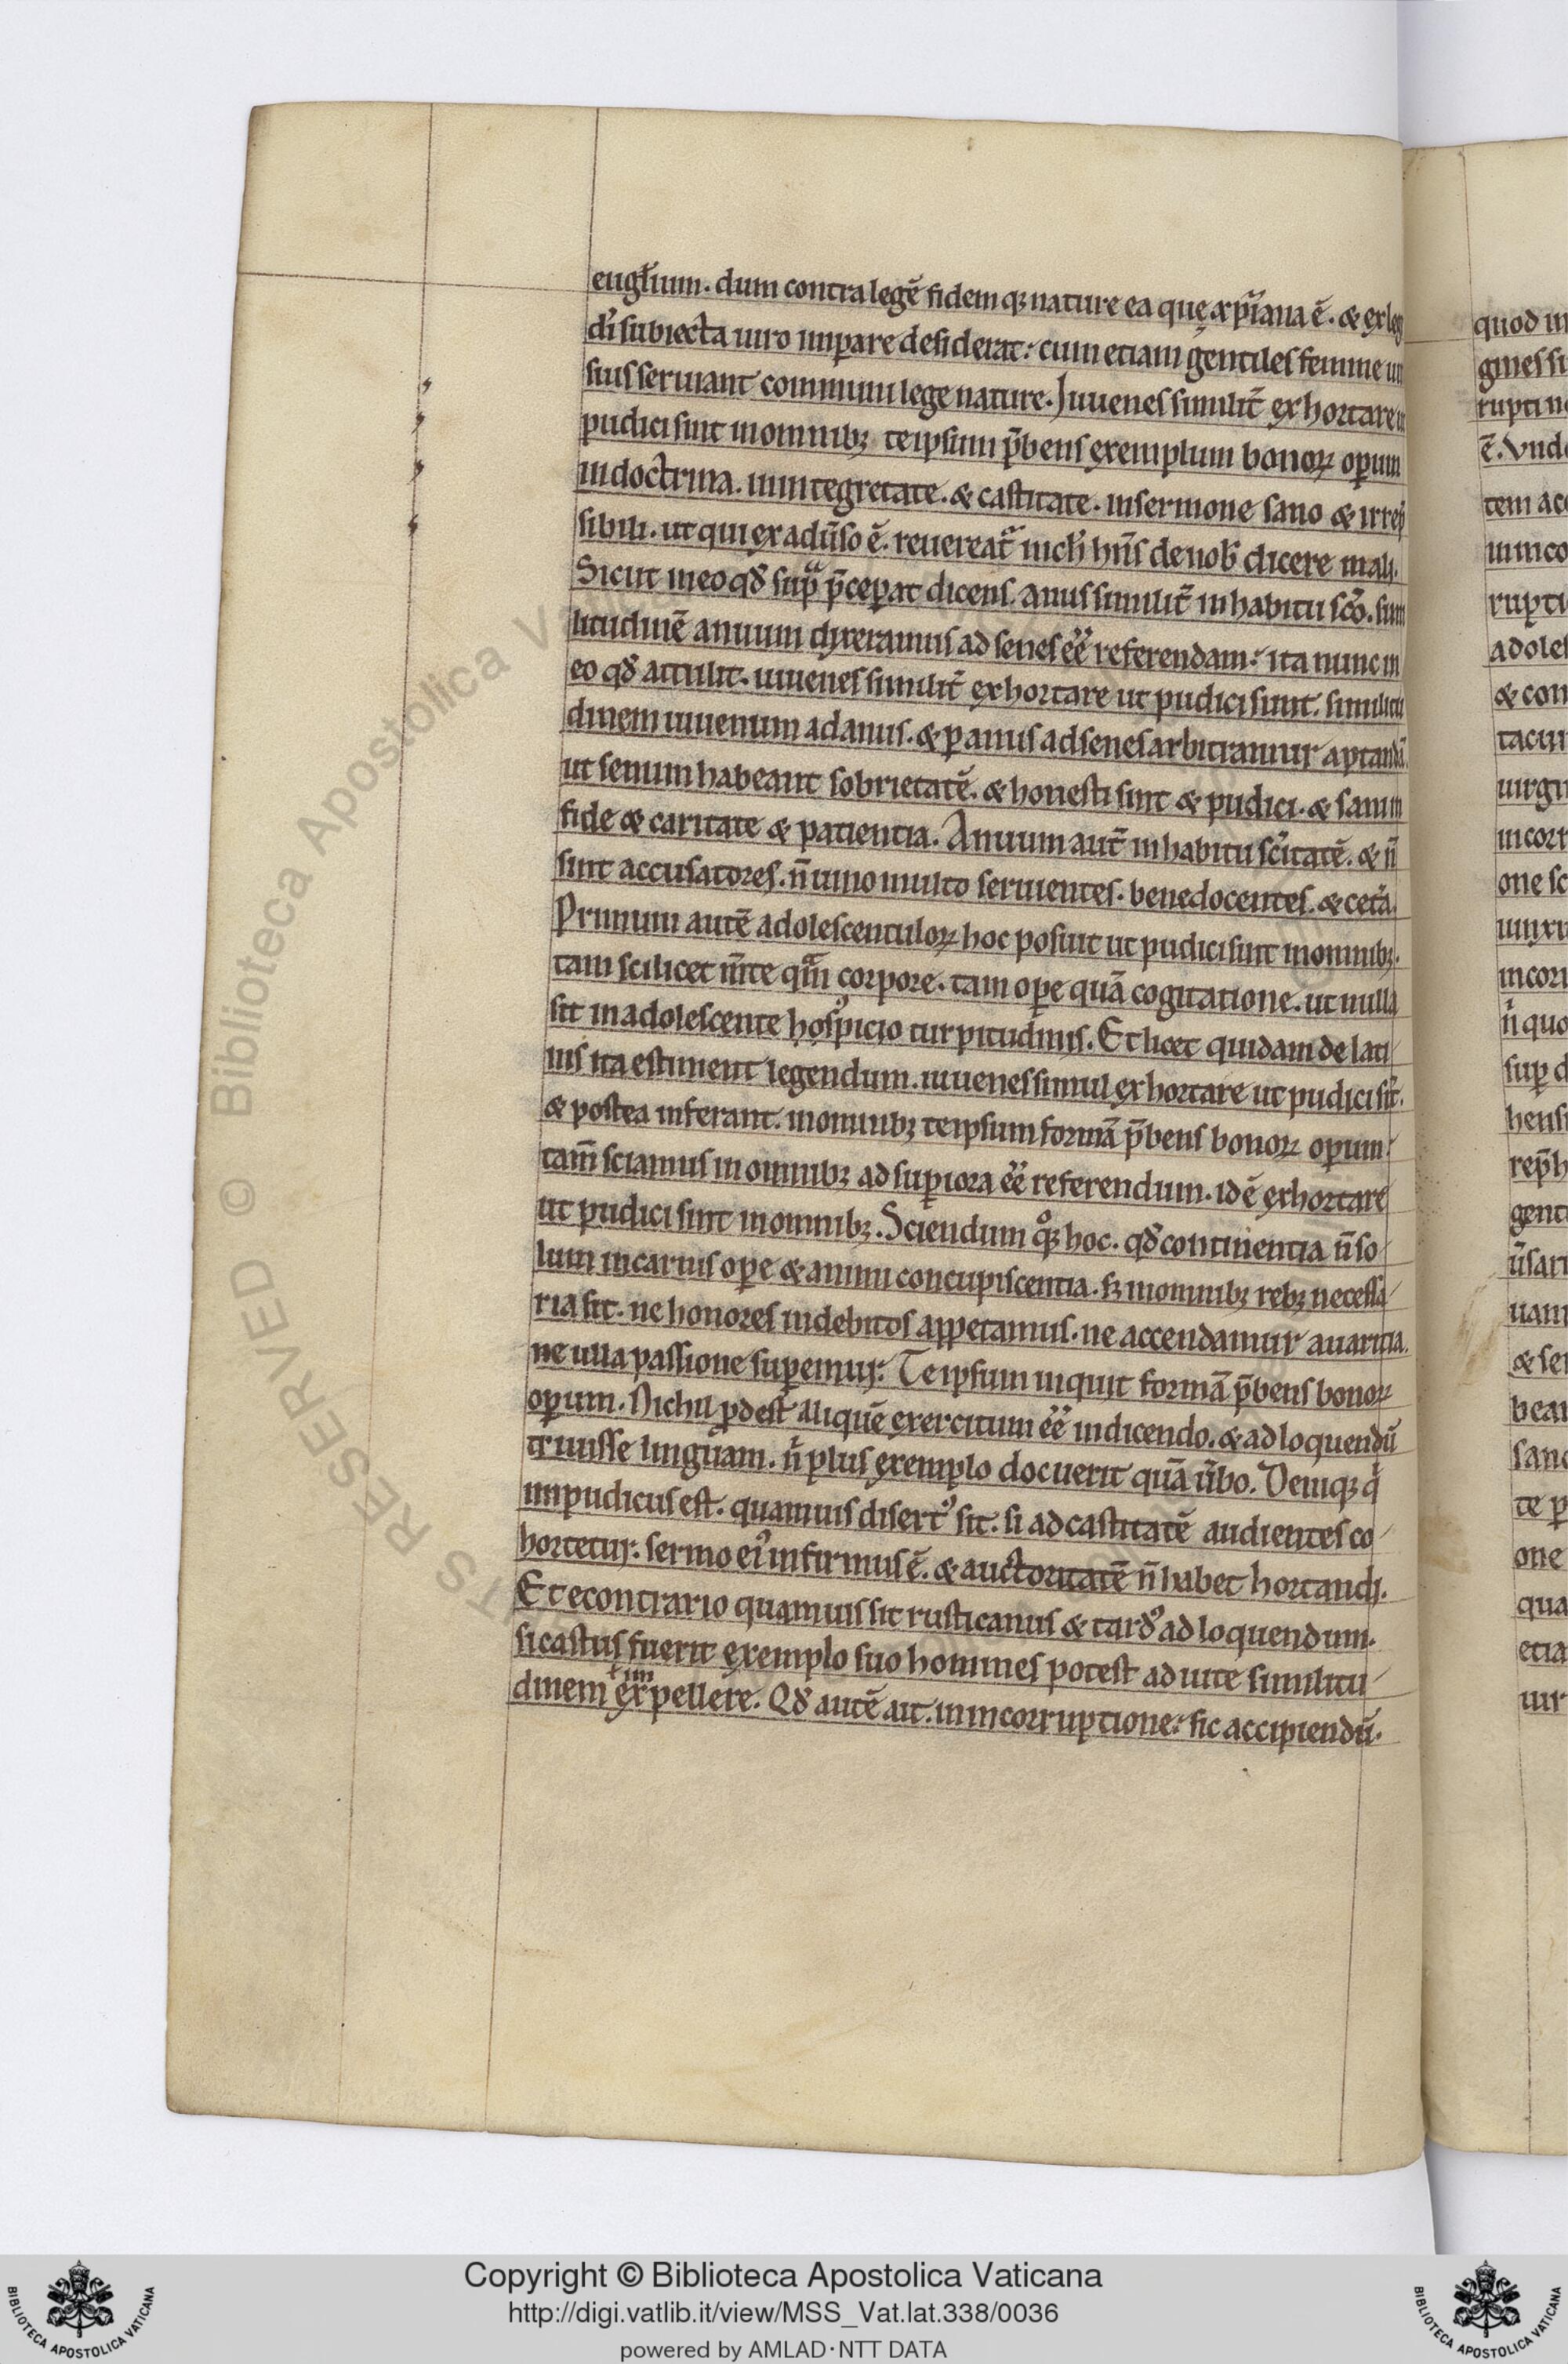 euglium. dum contra legē fidem qꝫ nature ea quę xp̄iana ē. & ex leg
di subiecta uiro imꝑare desiderat: cum etiam gentiles femine uir
suis seruiant communi lege nature. Iuuenes similit̄ exhortare ut
pudici sint in omnibꝫ teipsum p̄bens exemplum bonoꝝ oꝑum
in doctrina. in integretate. & castitate. in sermone sano & irrep̄
sibili. ut qui ex adūso ē. reuereat᷑ nich̄ hn̄s de nob̄ dicere mali.
Sicut in eo qđ sup̄ p̄ceꝑat dicens. anus similit̄ in habitu sc̄o. simi
litudinē anuum dixeramus ad senes ēē referendam: ita nunc in
eo qđ attulit. iuuenes similit̄ exhortare ut pudici sint. similitu
dinem iuuenum ad anus. & ꝑ anus ad senes arbitramur aptandā
ut senum habeant sobrietatē. & honesti sint & pudici. & sani in
fide & caritate & patientia. Anuum aut̄ in habitu sc̄itatē. & n̄
sint accusatores. n̄ uino multo seruientes. bene docentes. & cet̄a.
Primum autē adolescentuloꝝ hoc posuit ut pudici sint in omnibꝫ.
tam scilicet m̄te qm̄ corpore. tam oꝑe quā cogitatione. ut nulla
sit in adolescente hosꝰpicio turpitudinis. Et licet quidam de lati
nis ita estiment legendum. iuuenes simul exhortare ut pudici sīt.
& postea inferant. in omnibꝫ teipsum formā p̄bens bonoꝝ oꝑum:
tam̄ sciamus in omnibꝫ ad suꝑiora ēē referendum. id ē exhortare
ut pudici sint in omnibꝫ. Sciendum qͦꝫ hoc. qđ continentia n̄ so
lum in carnis oꝑe & animi concupiscentia. sꝫ in omnibꝫ rebꝫ necessa
ria sit. ne honores indebitos appetamus. ne accendamur auaritia.
ne ulla passione suꝑemur: Te ipsum inquit formā p̄bens bonoꝝ
oꝑum. Nichil ꝓdest aliquē exercitum ēē in dicendo. & ad loquendū
triuisse linguam. n̄ plus exemplo docuerit quā ūbo. Deniqꝫ q
impudicus est. quamuis disertꝰ sit. si ad castitatē audientes co
hortetur: sermo eiꝰ infirmus ē. & auctoritatē n̄ habet hortandi.
Et econtrario quamuis sit rusticanus & tardꝰ ad loquendum.
si castus fuerit exemplo suo homines potest ad uite similitu
ł im
dinem expellere. Qđ autē ait. in incorruptione: sic accipiendū.
quod in
gines si
rupti
ē. Vnd
tem ac
in inco
rupti
adoles
& con
taciu
uirgi
incorr
one sc
incor
n̄ quo
suꝑ d
hens
rep̄h
gent
ūsari
uam
& se
bea
sanc
te p
one
qua
etia
uir
© Biblioteca Apostolica Vaticana
RESERVED
Copyright © Biblioteca Apostolica Vaticana
http://digi.vatlib.it/view/MSS_Vat.lat.338/0036
powered by AMLAD·NTT DATA
BIBLIOTECA APOSTOLICA VATICANA
BIBLIOTECA APOSTOLICA VATICANA